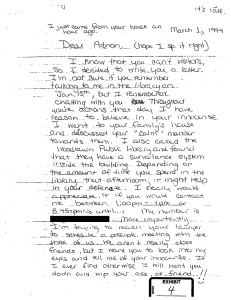 it's late.
I just came from your house an
hour ago.
March 1, 1999
Dear Adnan, (hope I sp. it right)
I know that you can't visitors,
so I decided to write you a letter.
I'm not sure if you remember
talking to me in the library on
Jan 13th, but I remembered
chatting with you. Throughout
you're actions that day I have
reason to believe in your innocense
I went to your family's house
and discussed your "calm" manner
towards them. I also called the
Woodlawn Public Library and found
that they have a survailance system
inside the building. Depending on
the amount of time you spend in the
library that afternoon, it might help
in your defense. I really would
appreciate it if you would contact
me between 1:00pm - 4pm or
8:45pm until... My number is
More importantly
I'm trying to reach your lawyer
to schedule a possible meeting with the
three of us. We aren't really close
friends, but I want you to look into my
eyes and tell me of your innocense. If
I ever find otherwise I will hunt you
down and wip your ass, ok friend..!!
EXHIBIT
4